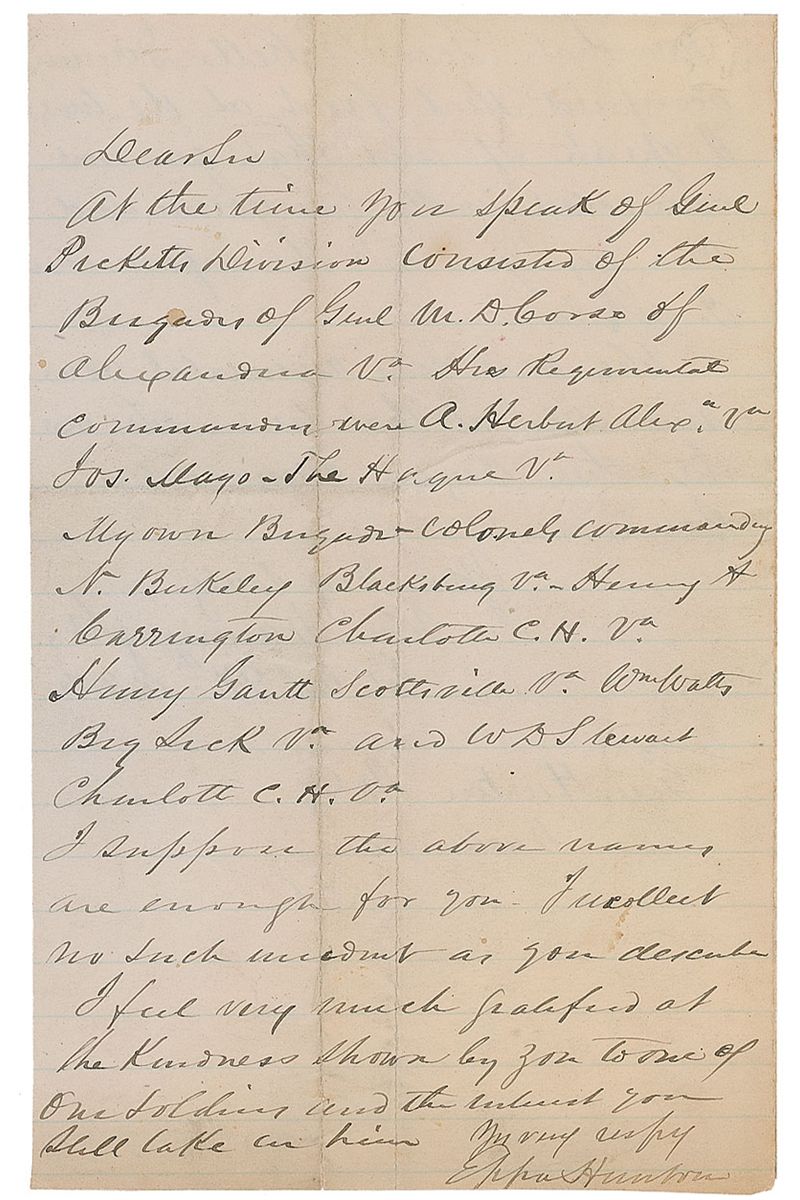 Dear Sir
At the time you speak of Genl
Picketts Division consisted of the
Brigades of Genl M. D. Corse of
Alexandria Va. His Regimental
commanders were A. Herbert Alexa. Va
Jos. Mayo - The Hague Va.
My own Brigade - Colonels commanding
N. Berkeley Blacksburg Va. - Henry A
Carrington Charlotte C. H. Va
Henry Gantt Scottsville Va. Wm Watts
Big Lick Va. and W D Stewart
Charlott C. H. Va.
I suppose the above names
are enough for you - I recollect
no such incident as you describe
I feel very much gratified at
the Kindness shown by you to one of
our soldiers and the interest you
still take in him Yr very respy
Eppa Hunton